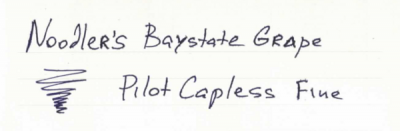 Noodler's Baystate Grape
Pilot Capless Fine